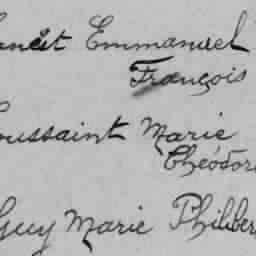 Emmanuel
François
Toussaint Marie
Théodore
Guy Marie Philibert